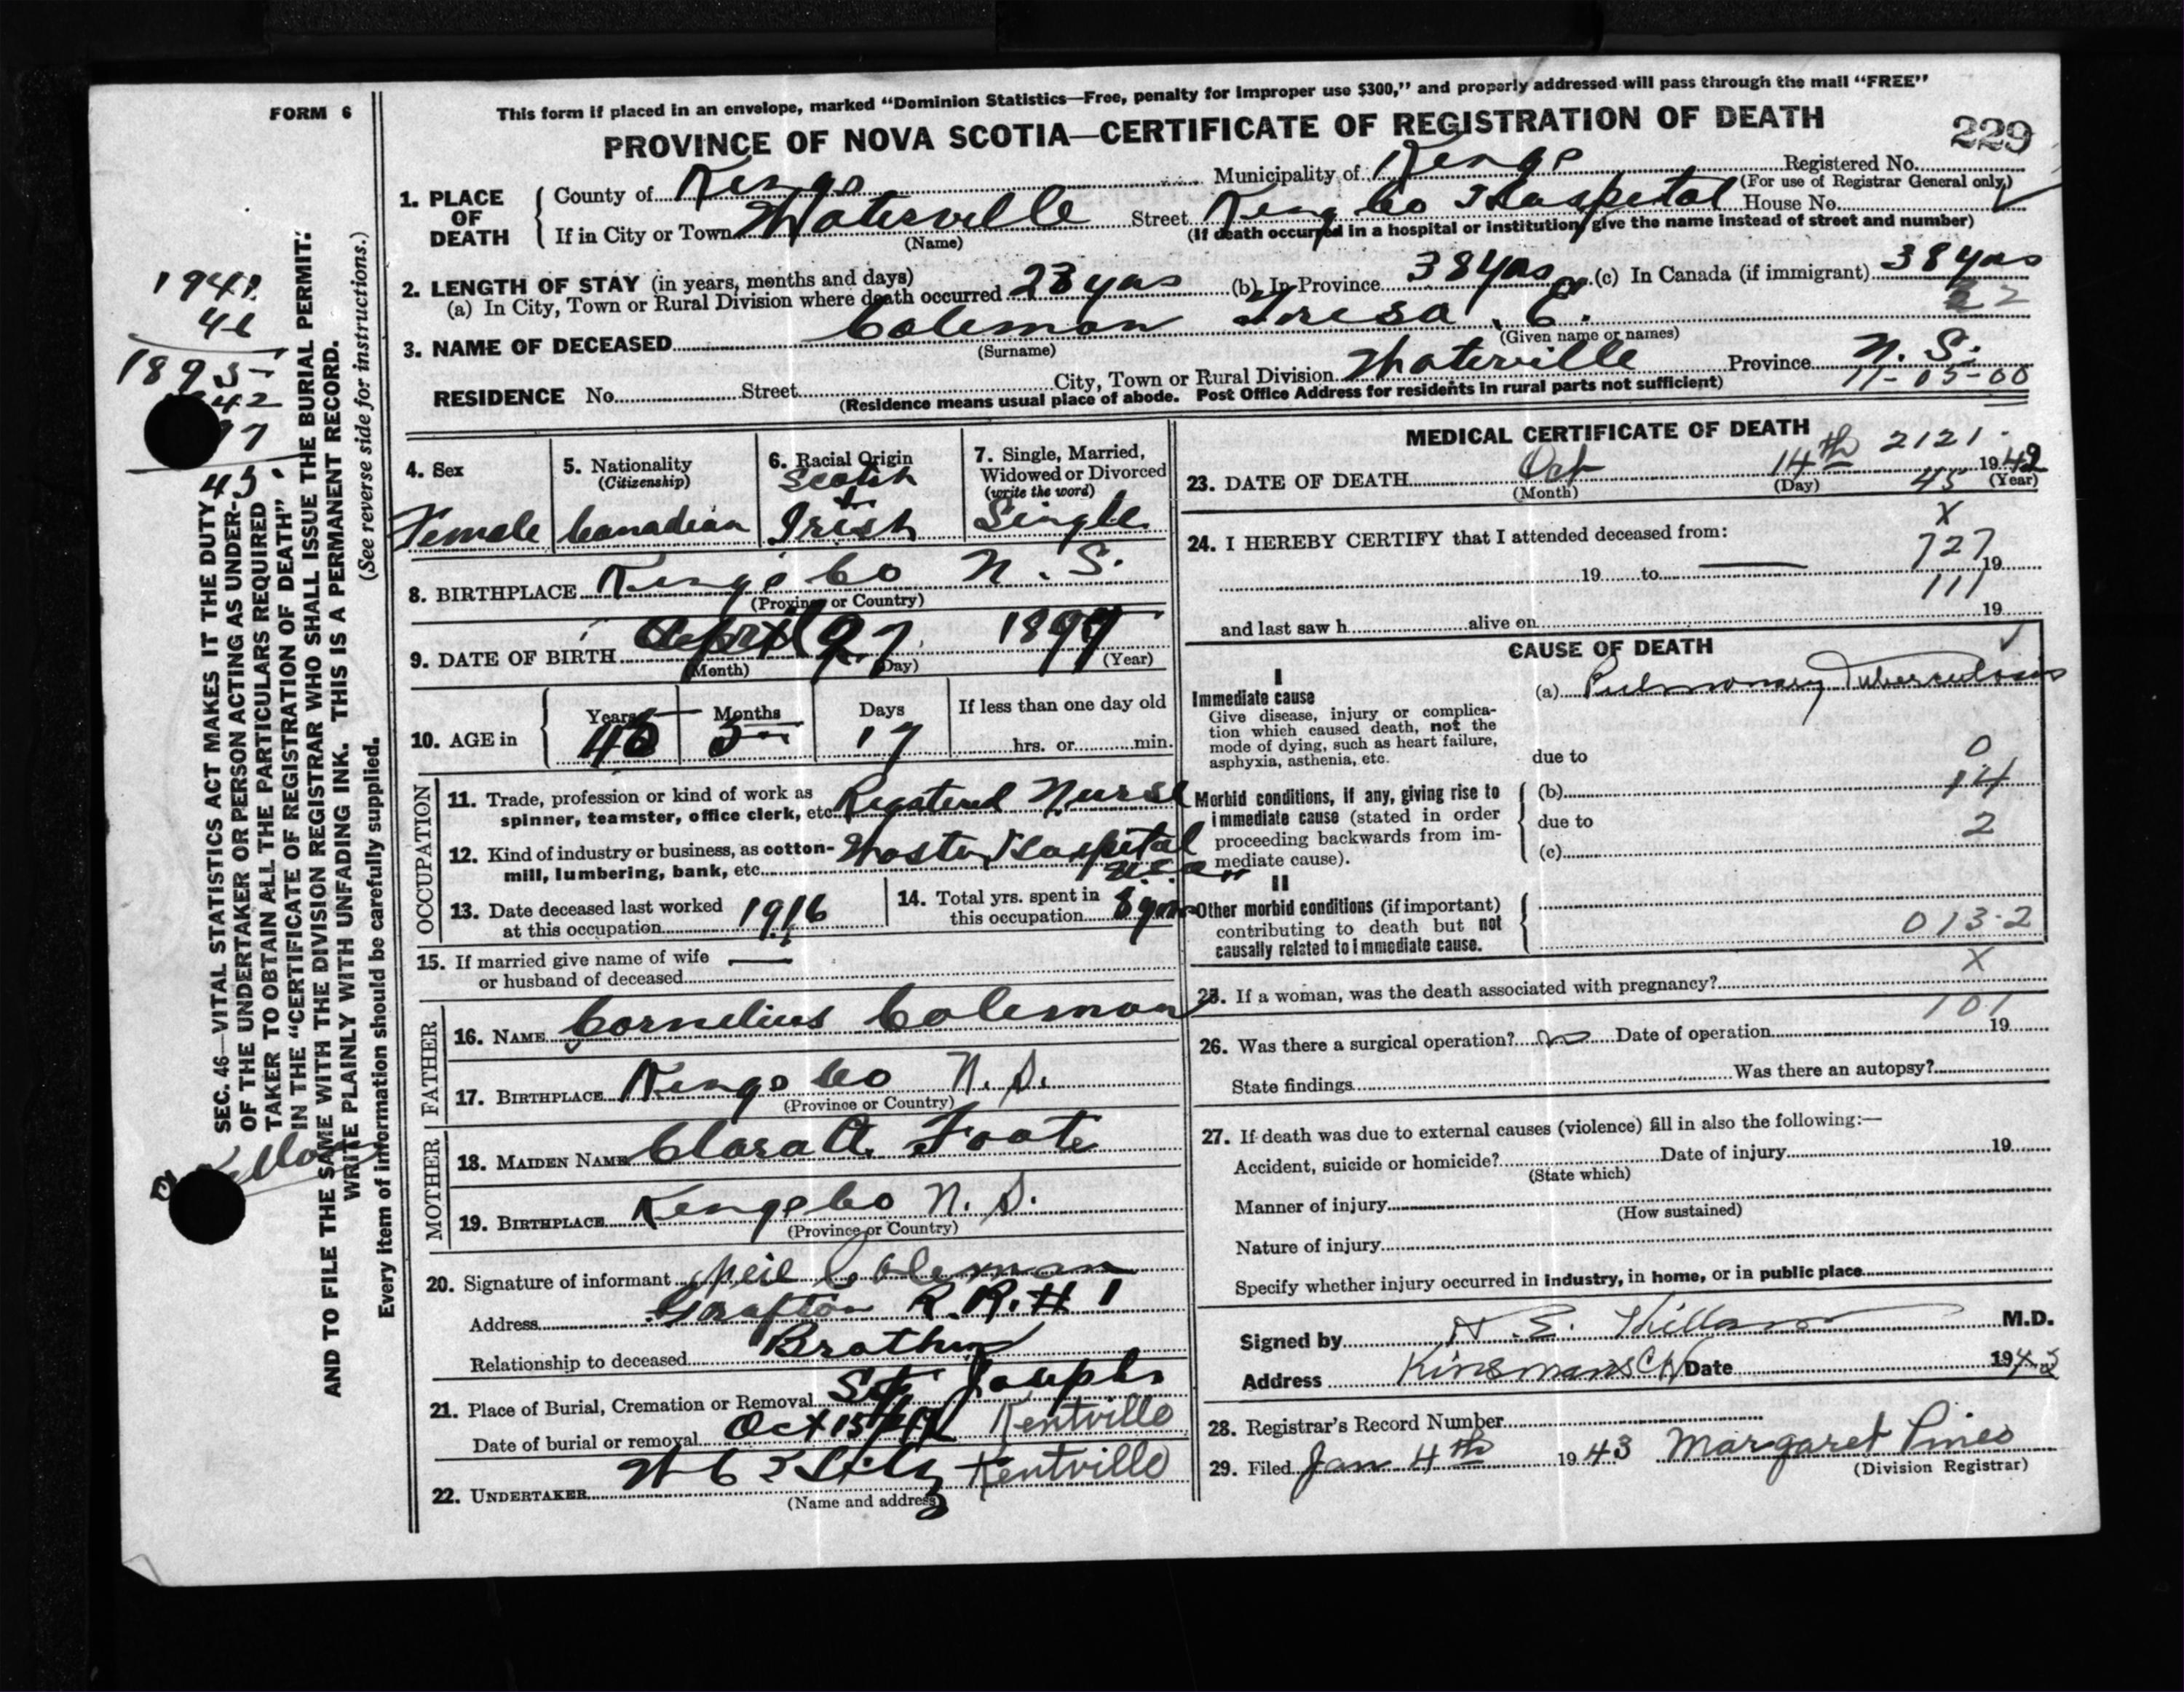 FORM 6
This form if placed in an envelope, marked "Dominion Statistics—Free, penalty for improper use $300," and properly addressed will pass through the mail "FREE"
PROVINCE OF NOVA SCOTIA—CERTIFICATE OF REGISTRATION OF DEATH
229
1. PLACE OF DEATH
County of Kings Municipality of Kings Registered No.
(For use of Registrar General only)
If in City or Town Waterville Street Kings Co Hospital House No.
(Name) (If death occurred in a hospital or institution, give the name instead of street and number)
2. LENGTH OF STAY (in years, months and days)
(a) In City, Town or Rural Division where death occurred 23 yrs (b) In Province 38 yrs (c) In Canada (if immigrant) 38 yrs
3. NAME OF DECEASED Coleman Tresa . C.
(Surname) (Given name or names)
RESIDENCE No. Street City, Town or Rural Division Waterville Province N. S.
(Residence means usual place of abode. Post Office Address for residents in rural parts not sufficient)
11-05-00
4. Sex Female
5. Nationality (Citizenship) Canadian
6. Racial Origin Scotch + Irish
7. Single, Married, Widowed or Divorced (write the word) Single
8. BIRTHPLACE Kings Co N. S.
(Province or Country)
9. DATE OF BIRTH 27
(Month) (Day) (Year)
10. AGE in
Years Months Days If less than one day old
5 17 hrs. or min.
OCCUPATION
11. Trade, profession or kind of work as spinner, teamster, office clerk, etc. Registered Nurse
12. Kind of industry or business, as cotton-mill, lumbering, bank, etc. Hospital
13. Date deceased last worked at this occupation 1916
14. Total yrs. spent in this occupation 8 yrs
15. If married give name of wife or husband of deceased —
FATHER
16. NAME Cornelius Coleman
17. BIRTHPLACE Kings Co N. S.
(Province or Country)
MOTHER
18. MAIDEN NAME Clara A. Foote
19. BIRTHPLACE Kings Co N. S.
(Province or Country)
20. Signature of informant Neil Coleman
Address Grafton R. R. # 1
Relationship to deceased Brother
21. Place of Burial, Cremation or Removal St Josephs
Date of burial or removal Oct 15/42 Kentville
22. UNDERTAKER Kentville
(Name and address)
MEDICAL CERTIFICATE OF DEATH
2121
23. DATE OF DEATH Oct 14th 1942
(Month) (Day) (Year)
45
X
24. I HEREBY CERTIFY that I attended deceased from:
727
19 to 19
111
and last saw h alive on 19
CAUSE OF DEATH
I
Immediate cause
Give disease, injury or complication which caused death, not the mode of dying, such as heart failure, asphyxia, asthenia, etc.
(a) Pulmonary Tuberculosis
due to
0
14
Morbid conditions, if any, giving rise to immediate cause (stated in order proceeding backwards from immediate cause).
(b)
due to
2
(c)
II
Other morbid conditions (if important) contributing to death but not causally related to immediate cause.
013-2
X
25. If a woman, was the death associated with pregnancy?
101
26. Was there a surgical operation? no Date of operation 19
State findings Was there an autopsy?
27. If death was due to external causes (violence) fill in also the following:—
Accident, suicide or homicide? Date of injury 19
(State which)
Manner of injury
(How sustained)
Nature of injury
Specify whether injury occurred in industry, in home, or in public place
Signed by M.D.
Address Kinsmans Date 1943
28. Registrar's Record Number
29. Filed Jan 4th 1943 Margaret Pineo
(Division Registrar)
SEC. 46—VITAL STATISTICS ACT MAKES IT THE DUTY
OF THE UNDERTAKER OR PERSON ACTING AS UNDER-
TAKER TO OBTAIN ALL THE PARTICULARS REQUIRED
IN THE "CERTIFICATE OF REGISTRATION OF DEATH"
AND TO FILE THE SAME WITH THE DIVISION REGISTRAR WHO SHALL ISSUE THE BURIAL PERMIT.
WRITE PLAINLY WITH UNFADING INK. THIS IS A PERMANENT RECORD.
(See reverse side for instructions.)
Every item of information should be carefully supplied.
1941
46
1895
42
97
45